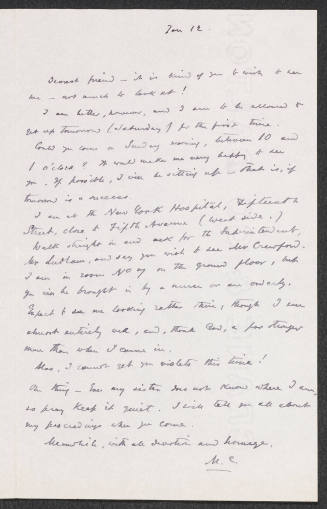 Jan 12.
Dearest friend – it is kind of you to wish to see
me – not much to look at!
I am better, however, and I am to be allowed to
get up tomorrow (Saturday) for the first time.
Could you come on Sunday morning, between 10 and
1 o'clock? It would make me very happy to see
you. If possible, I will be sitting up – that is, if
tomorrow is a success.
I am at the New York Hospital, Fifteenth
Street, close to Fifth Avenue (West side.)
Walk straight in and ask for the Superintendent,
Mr Ludlam, and say you wish to see Mr Crawford.
I am in room No 49 on the ground floor, but
you will be brought in by a nurse or an orderly.
Expect to see me looking rather thin, though I am
almost entirely well, and, thank God, a far stronger
man than when I came in.
Alas, I cannot get you violets this time!
One thing – Even my sister does not know where I am,
so pray keep it quiet. I will tell you all about
my proceedings when you come.
Meanwhile, with all devotion and homage,
M. C.